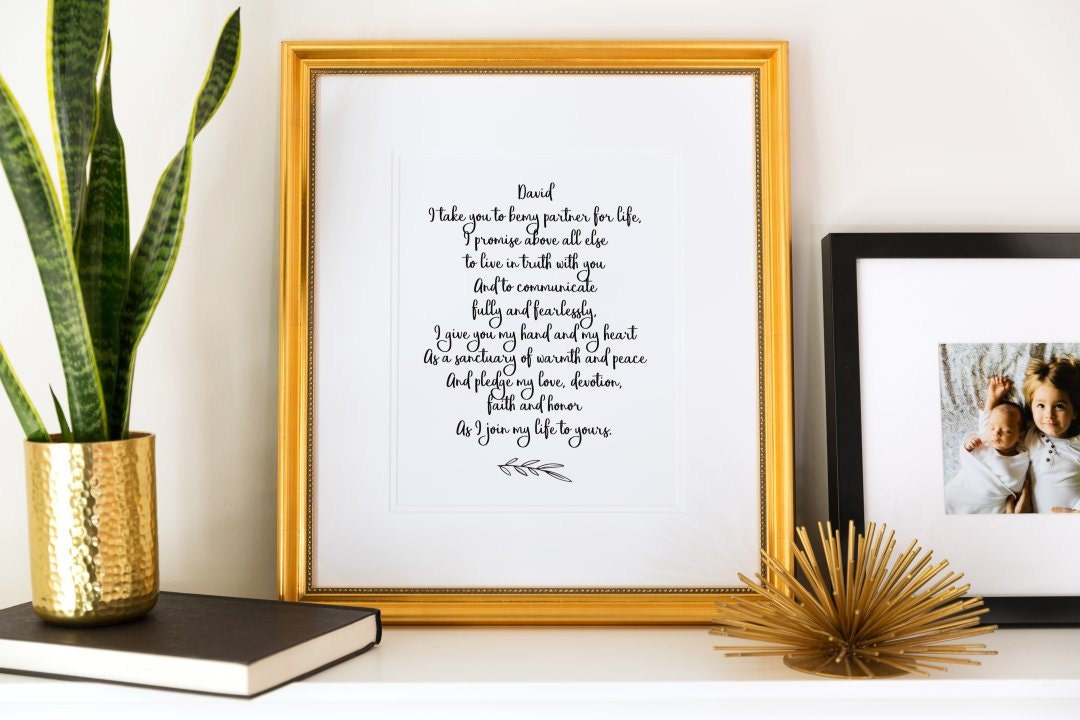 David
I take you to bemy partner for life,
I promise above all else
to live in truth with you
And to communicate
fully and fearlessly,
I give you my hand and my heart
As a sanctuary of warmth and peace
And pledge my love, devotion,
faith and honor
As I join my life to yours.